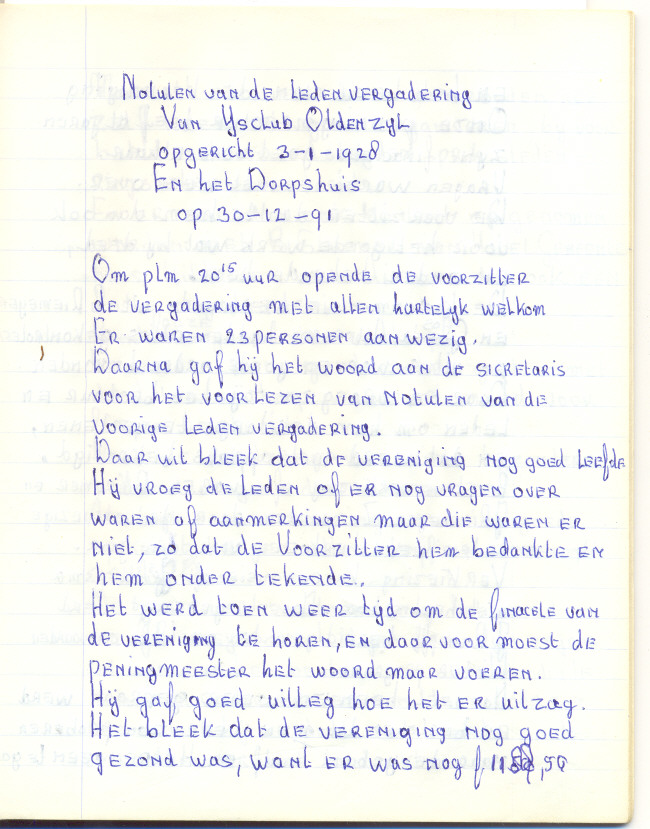 Notulen van de ledenvergadering
Van Ysclub Oldenzyl
opgericht 3-1-1928
En het Dorpshuis
op 30-12-91
Om plm. 20¹⁵ uur opende de voorzitter
de vergadering met allen hartelyk welkom
Er waren 23 personen aanwezig.
Daarna gaf hij het woord aan de sicretaris
voor het voorlezen van Notulen van de
voorige leden vergadering.
Daar uit bleek dat de vereniging nog goed leefde
Hij vroeg de leden of er nog vragen over
waren of aanmerkingen maar die waren er
niet, zo dat de Voorzitter hem bedankte en
hem onder tekende.
Het werd toen weer tyd om de finacele van
de vereniging te horen, en daar voor moest de
peningmeester het woord maar voeren.
Hij gaf goed uitleg hoe het er uitzag.
Het bleek dat de vereniging nog goed
gezond was, want er was nog f